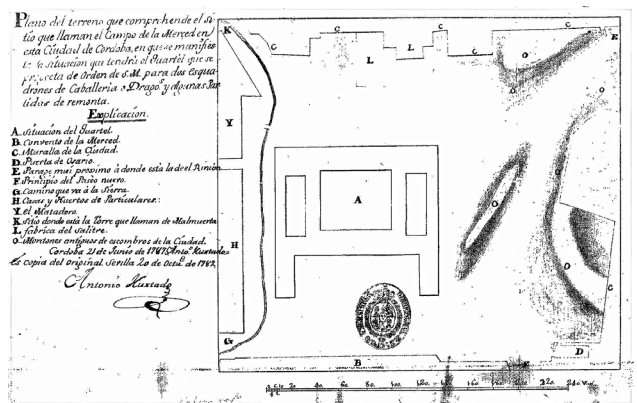 Plano del terreno que comprhende el si-
tio que llaman el Campo de la Merced en
esta Ciudad de Cordoba, en que se manifies-
ta la situacion que tendrá el Quartel que se
proyecta de Orden de S.M. para dos Esqua-
drones de Caballeria o Dragos. y algunas Par-
tidas de remonta.
Explicacion.
A. Situacion del Quartel.
B. Convento de la Merced.
C. Muralla de la Ciudad.
D. Puerta de Osario.
E. Parage mui proximo á donde está la del Rincon
F. Principio del Paseo nuevo.
G. Camino que vá á la Sierra.
H. Casas y Huertos de Particulares.
Y. el Matadero.
K. Sitio donde está la Torre que llaman de Malmuerta
L. fabrica del Salitre.
O. Montones antiguos de escombros de la Ciudad.
Cordoba 21 de Junio de 1787. Anto. Hurtado
Es copia del original. Sevilla 20 de Octe. de 1782.
Antonio Hurtado
K C C C C E
L L
O
O O
Y
C
A
O
H
O
C
G
D
B
20. 40. 60. 80. 100. 120. 160. 220. 240 Vars.